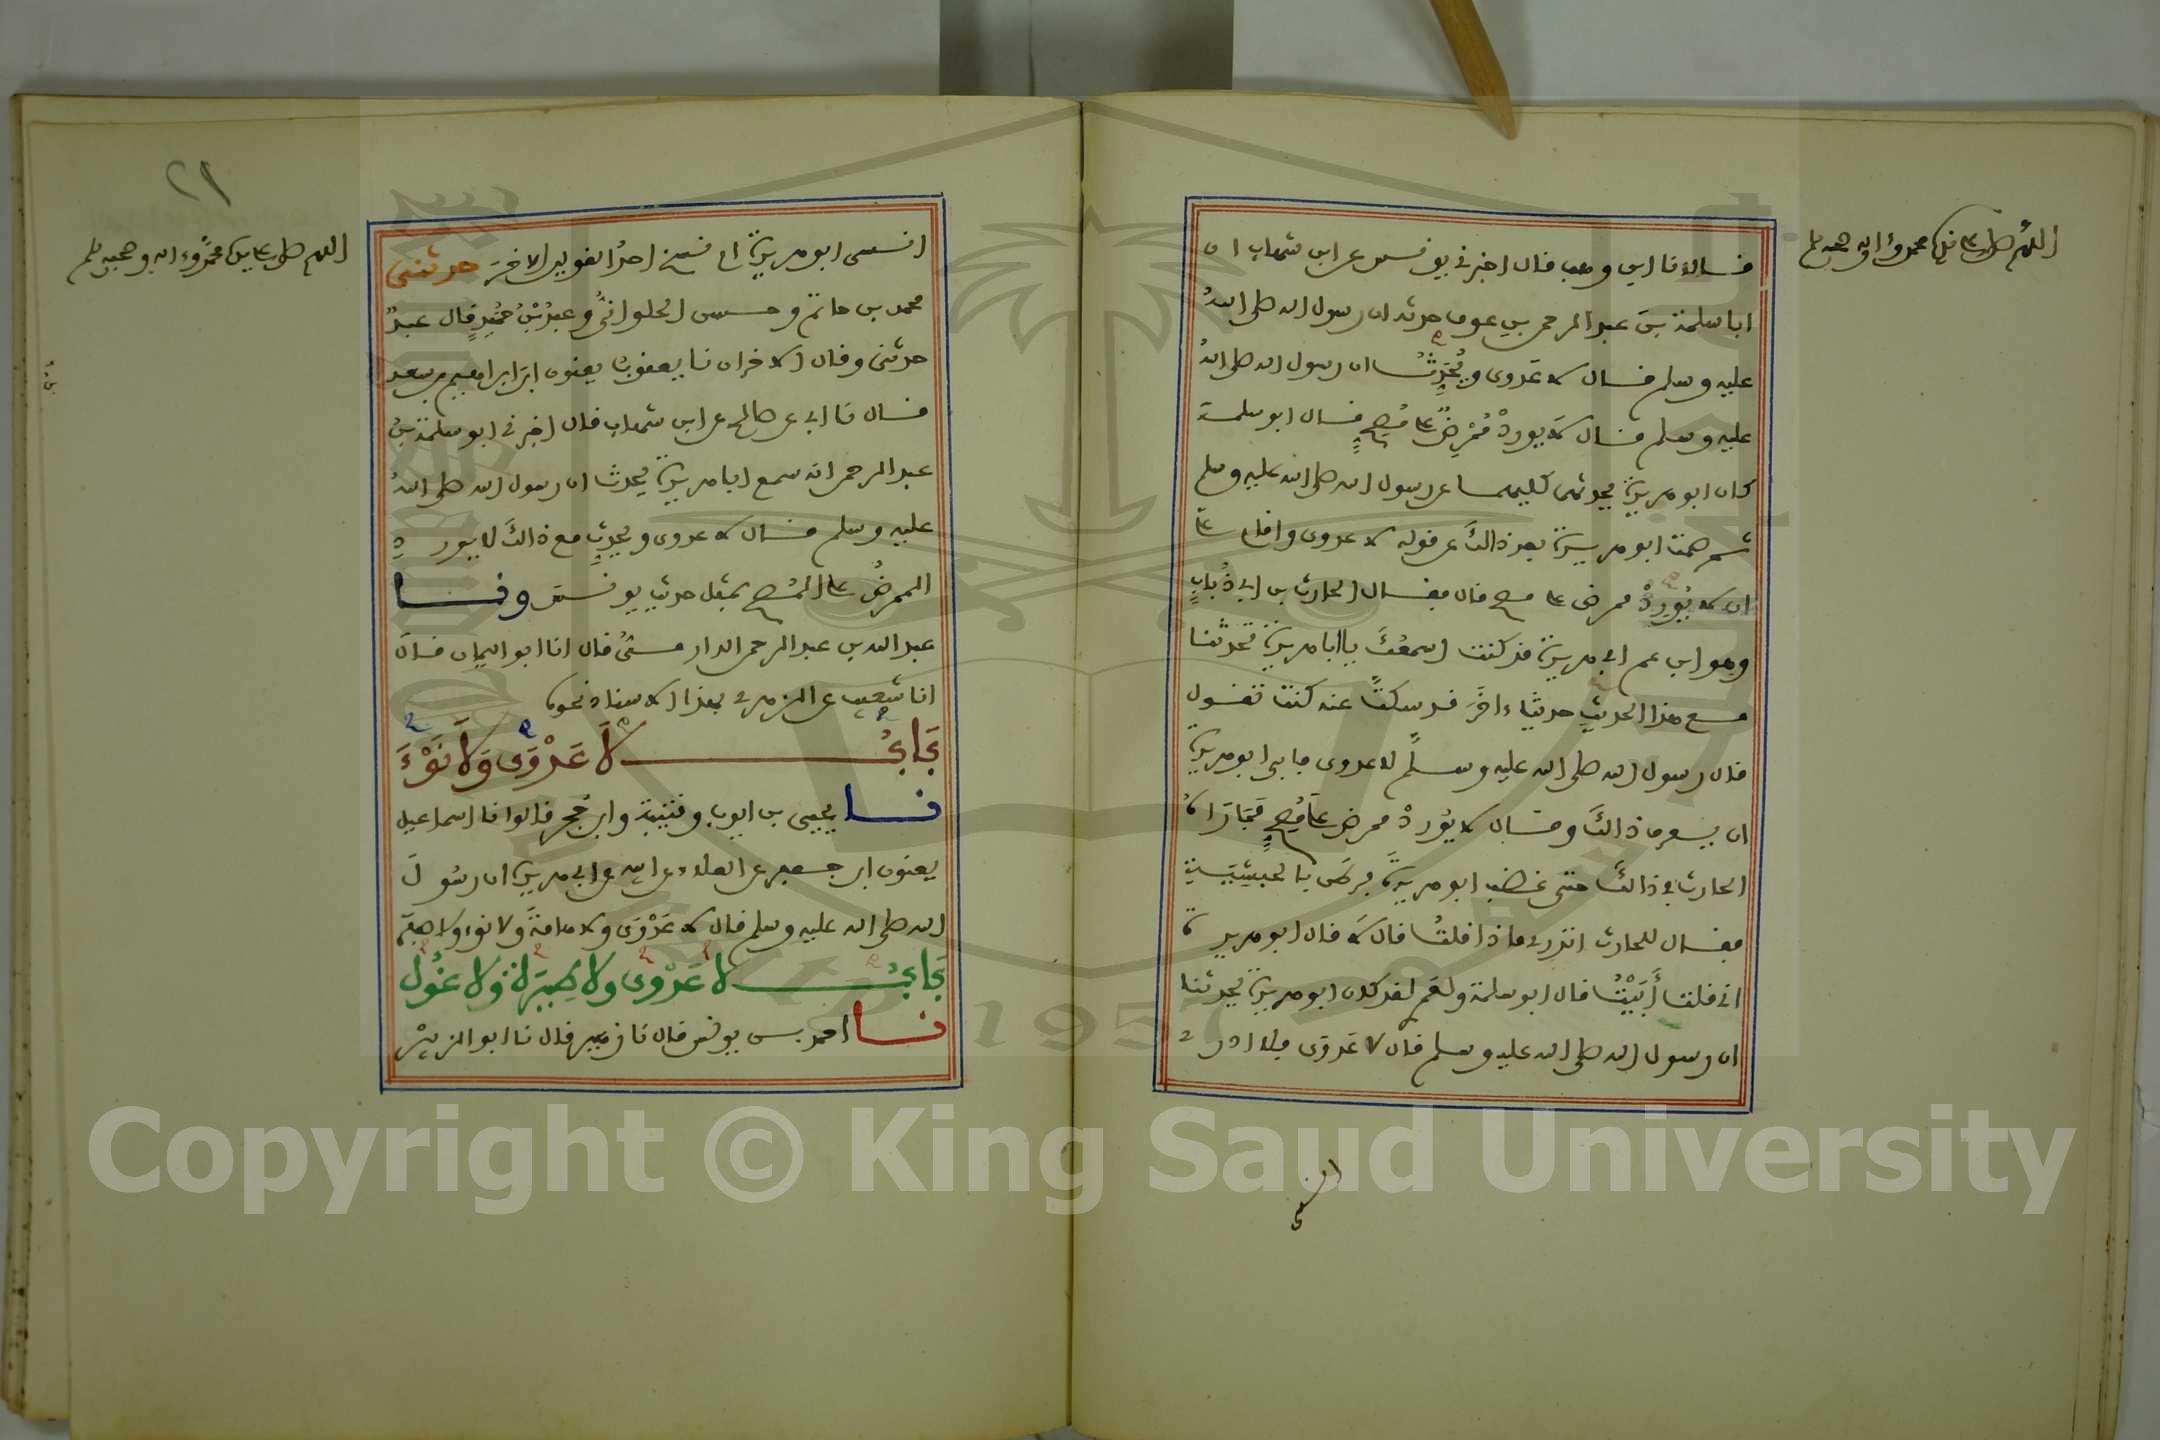 اللهم صل على نبيك محمد وءاله وصحبه وسلم
قالا نا ابن وهب قال اخبرني يونس عن ابن شهاب ان
ابا سلمة بن عبد الرحمن بن عوف حدثه ان رسول الله صلى الله
عليه وسلم قال لا عدوى ويحدث ان رسول الله صلى الله
عليه وسلم قال لا يورد ممرض على مصح قال ابو سلمة
كان ابو هريرة يحدثهما كليهما عن رسول الله صلى الله عليه وسلم
ثم صمت ابو هريرة بعد ذالك عن قوله لا عدوى واقام على
ان لا يورد ممرض على مصح قال فقال الحارث بن ابي ذباب
وهو ابن عم ابي هريرة قد كنت اسمعك يا ابا هريرة تحدثنا
مع هذا الحديث حديثا ءاخر قد سكت عنه كنت تقول
قال رسول الله صلى الله عليه وسلم لا عدوى فابى ابو هريرة
ان يعرف ذالك وقال لا يورد ممرض على مصح فماراه
الحارث في ذالك حتى غضب ابو هريرة فرطن بالحبشية
فقال للحارث اتدري ماذا قلت قال لا قال ابو هريرة
اني قلت أبيت قال ابو سلمة ولعمري لقد كان ابو هريرة يحدثنا
ان رسول الله صلى الله عليه وسلم قال لا عدوى فلا ادري
انسي
٢١
اللهم صل على نبيك محمد وءاله وصحبه وسلم
انسي ابو هريرة او نسخ احد القولين الاخر حدثني
محمد بن حاتم وحسن الحلواني وعبد بن حميد قال عبد
حدثني وقال الاخران نا يعقوب يعنون ابن ابراهيم بن سعد
قال نا ابي عن صالح عن ابن شهاب قال اخبرني ابو سلمة بن
عبد الرحمن انه سمع ابا هريرة يحدث ان رسول الله صلى الله
عليه وسلم قال لا عدوى ويحدث مع ذالك لا يورد
الممرض على المصح بمثل حديث يونس ونا
عبد الله بن عبد الرحمن الدارمي قال انا ابو اليمان قال
انا شعيب عن الزهري بهذا الاسناد نحوه
باب لا عدوى ولا نوء
نا يحيى بن ايوب وقتيبة وابن حجر قالوا نا اسماعيل
يعنون ابن جعفر عن العلاء عن ابيه عن ابي هريرة ان رسول
الله صلى الله عليه وسلم قال لا عدوى ولا هامة ولا نوء ولا صفر
باب لا عدوى ولا طيرة ولا غول
نا احمد بن يونس قال نا زهير قال نا ابو الزبير
Copyright © King Saud University
1957